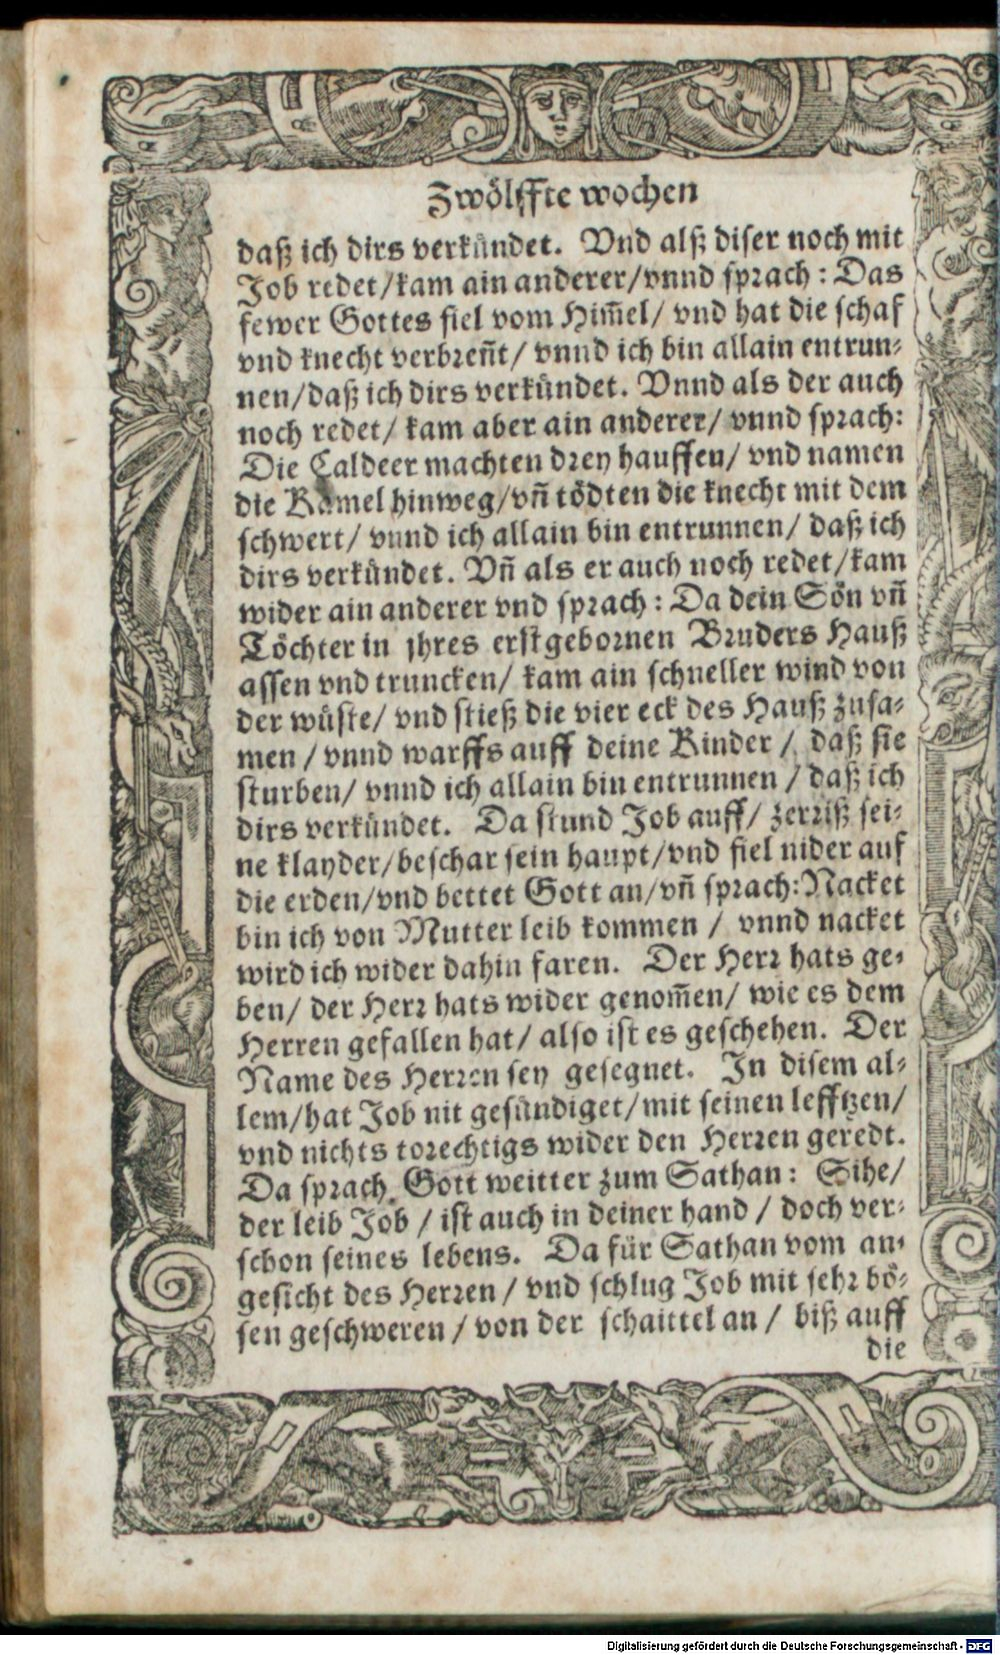 Zwölffte wochen
daß ich dirs verkündet. Vnd alß diser noch mit
Job redet/kam ain anderer/vnnd sprach: Das
fewer Gottes fiel vom Him̃el/ vnd hat die schaf
vnd knecht verbreñt/ vnnd ich bin allain entrun⸗
nen/daß ich dirs verkündet. Vnnd als der auch
noch redet/ kam aber ain anderer/ vnnd sprach:
Die Caldeer machten drey hauffen/ vnd namen
die Kamel hinweg/vñ tödten die knecht mit dem
schwert/ vnnd ich allain bin entrunnen/ daß ich
dirs verkündet. Vñ als er auch noch redet/kam
wider ain anderer vnd sprach: Da dein Sön vñ
Töchter in jhres erstgebornen Bruders Hauß
assen vnd truncken/ kam ain schneller wind von
der wüste/ vnd stieß die vier eck des Hauß zusa⸗
men / vnnd warffs auff deine Kinder / daß sie
sturben/ vnnd ich allain bin entrunnen / daß ich
dirs verkündet. Da stund Job auff/ zerriß sei⸗
ne klayder/beschar sein haupt/vnd fiel nider auf
die erden/vnd bettet Gott an/vñ sprach:Nacket
bin ich von Mutter leib kommen / vnnd nacket
wird ich wider dahin faren. Der Herr hats ge⸗
ben/ der Herr hats wider genom̃en/ wie es dem
Herren gefallen hat/ also ist es geschehen. Der
Name des Herren sey gesegnet. In disem al⸗
lem/hat Job nit gesündiget/mit seinen lefftzen/
vnd nichts torechtigs wider den Herren geredt.
Da sprach Gott weitter zum Sathan: Sihe/
der leib Job / ist auch in deiner hand / doch ver⸗
schon seines lebens. Da für Sathan vom an⸗
gesicht des Herren / vnd schlug Job mit sehr bö⸗
sen geschweren / von der schaittel an / biß auff
die
Digitalisierung gefördert durch die Deutsche Forschungsgemeinschaft - DFG